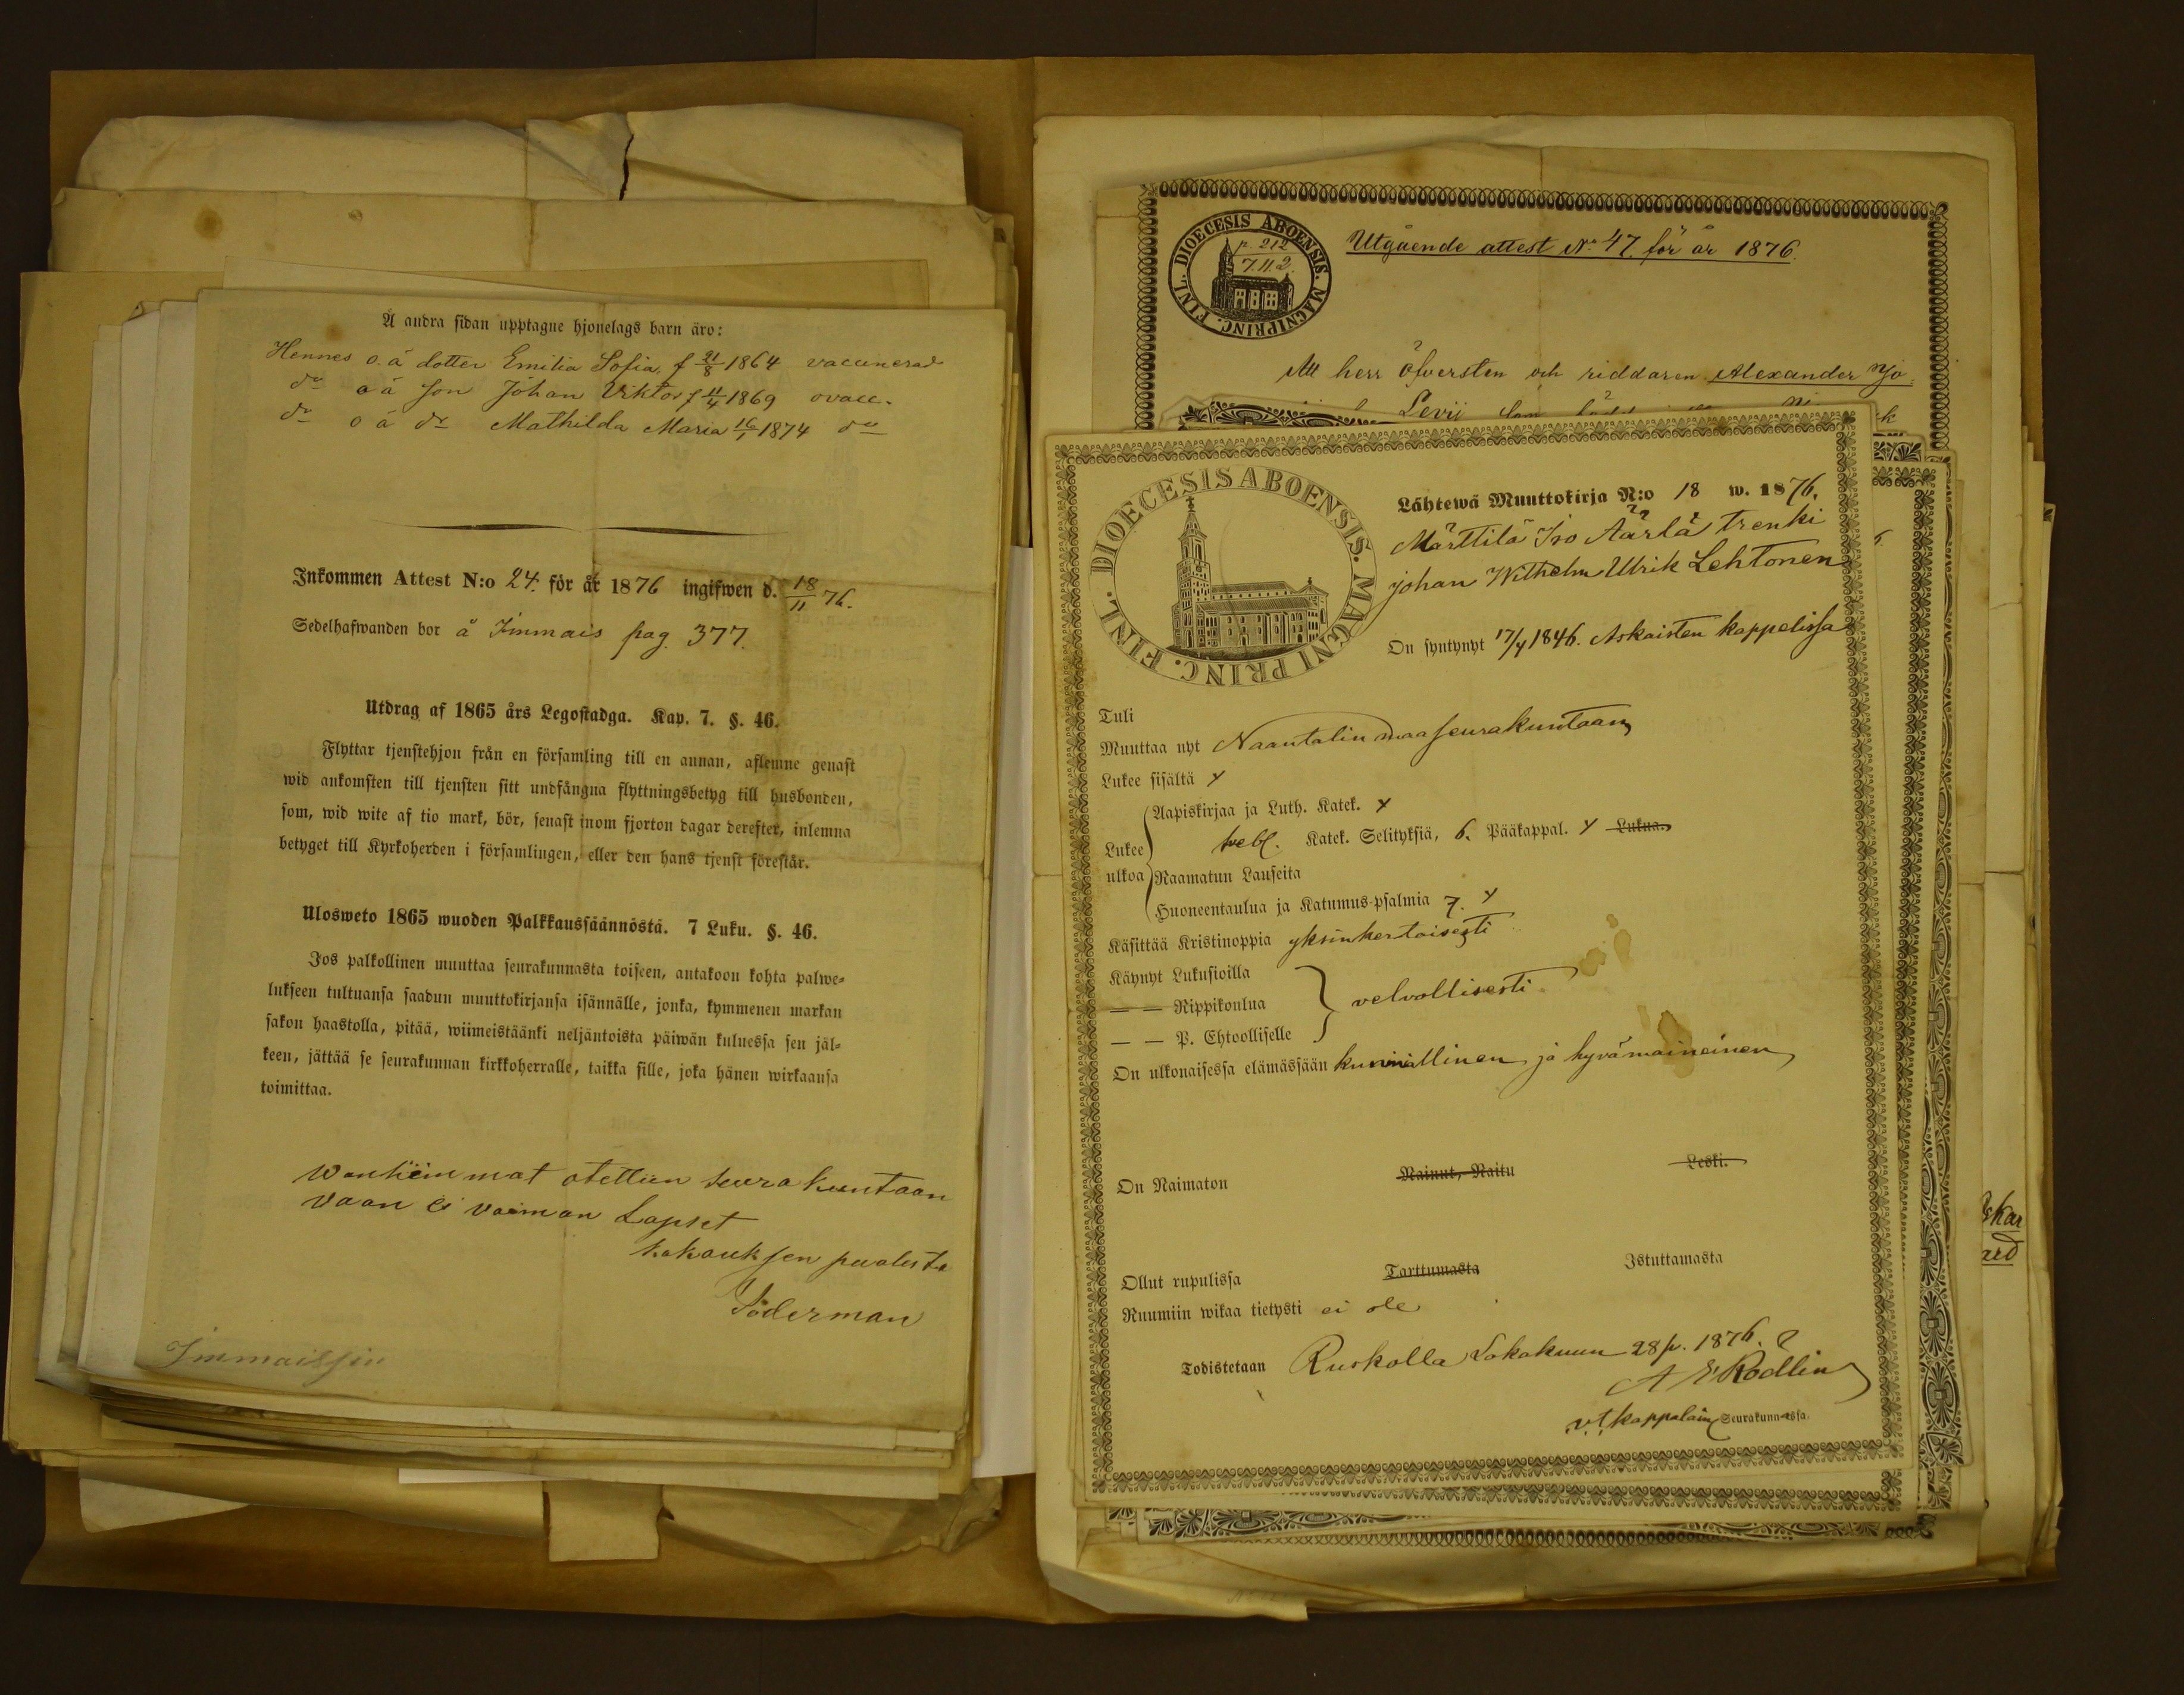 Å andra sidan upptagne hjonelags barn äro:
Hennes o. ä dotter Emilia Sofia, f 21/8 1864 vaccinerad
do o ä son Johan Viktor f 11/4 1869 ovacc.
do o ä dr Mathilda Maria 16/1 1874 do
Inkommen Attest N:o 24. för år 1876 ingifwen d. 18/11 76.
Sedelhafwanden bor å Immais pag. 377.
Utdrag af 1865 års Legostadga. Kap. 7. §. 46.
Flyttar tjenstehjon från en församling till en annan, aflemne genast
wid ankomsten till tjensten sitt undfångna flyttningsbetyg till husbonden,
som, wid wite af tio mark, bör, senast inom fjorton dagar derefter, inlemna
betyget till Kyrkoherden i församlingen, eller den hans tjenst förestår.
Ulosweto 1865 wuoden Palkkaussäännöstä. 7 Luku. §. 46.
Jos palkollinen muuttaa seurakunnasta toiseen, antakoon kohta palwe-
lukseen tultuansa saadun muuttokirjansa isännälle, jonka, kymmenen markan
sakon haastolla, pitää, wiimeistäänki neljäntoista päiwän kuluessa sen jäl-
keen, jättää se seurakunnan kirkkoherralle, taikka sille, joka hänen wirkaansa
toimittaa.
Wanhemmat otettiin seurakuntaan
vaan ei vaiman Lapset
kokouksen puolesta
Söderman
Immaissiu
DIOECESIS ABOENSIS. MAGNI PRINC. FINL.
p. 212
7.11.2.
Utgående attest No 47. för år 1876.
Att herr öfversten och riddaren Alexander Jo
Levii
DIOECESIS ABOENSIS. MAGNI PRINC. FINL.
Lähtewä Muuttokirja N:o 18 w. 1876.
Märttilä Iso Äärlä trenki
Johan Wilhelm Ulrik Lehtonen
On syntynyt 17/4 1846. Askaisten kappelissa
Tuli
Muuttaa nyt Naantalin maaseurakuntaan
Lukee sisältä
Aapiskirjaa ja Luth. Katek.
Lukee ulkoa
Katek. Selityksiä, 6. Pääkappal. Lukua.
Raamatun Lauseita
Huoneentaulua ja Katumus-psalmia 7.
Käsittää Kristinoppia yksinkertaisesti
Käynyt Lukusioilla
— — Rippikoulua velvollisesti
— — P. Ehtoolliselle
On ulkonaisessa elämässään kunniallinen ja hyvämaineinen
On Naimaton Nainut, Naitu Leski.
Ollut rupulissa Tarttumasta Istuttamasta
Ruumiin wikaa tietysti ei ole
Todistetaan Ruskolla Lokakuun 28 p. 1876.
A E Rodlin
v.t. kappalain Seurakunnassa.